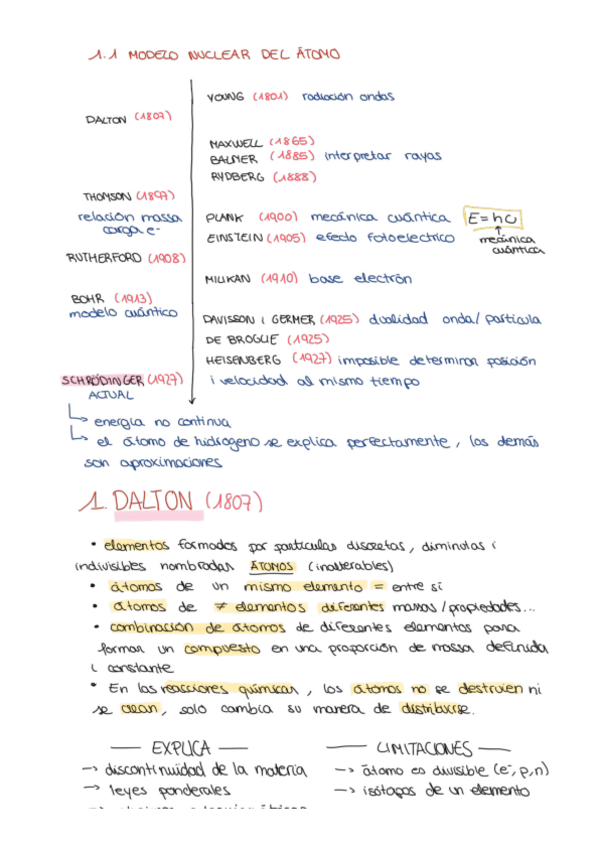 1.1 MODELO NUCLEAR DEL ÁTOMO
YOUNG (1801) radiación ondas
DALTON (1807)
MAXWELL (1865)
BALMER (1885) interpretar rayas
RYDBERG (1888)
THOMSON (1897)
relación massa
carga e-
PLANK (1900) mecánica cuántica E=hυ
EINSTEIN (1905) efecto fotoelectrico
mecánica
cuántica
RUTHERFORD (1908)
MILIKAN (1910) base electrón
BOHR (1913)
modelo cuántico
DAVISSON i GERMER (1925) dualidad onda/particula
DE BROGLIE (1925)
HEISENBERG (1927) imposible determinar posición
i velocidad al mismo tiempo
SCHRÖDINGER (1927)
ACTUAL
energía no continua
el átomo de hidrogeno se explica perfectamente, los demás
son aproximaciones
1. DALTON (1807)
• elementos formados por particulas discretas, diminutas i
indivisibles nombradas ÁTOMOS (inalterables)
• átomos de un mismo elemento = entre sí
• átomos de ≠ elementos diferentes masas/propiedades...
• combinación de átomos de diferentes elementos para
formar un compuesto en una proporción de massa definida
i constante
• En las reacciones químicas, los átomos no se destruien ni
se crean, solo cambia su manera de distribuirse.
EXPLICA
→ discontinuidad de la materia
→ leyes ponderales
LIMITACIONES
→ átomo es divisible (e-, p, n)
→ isótopos de un elemento